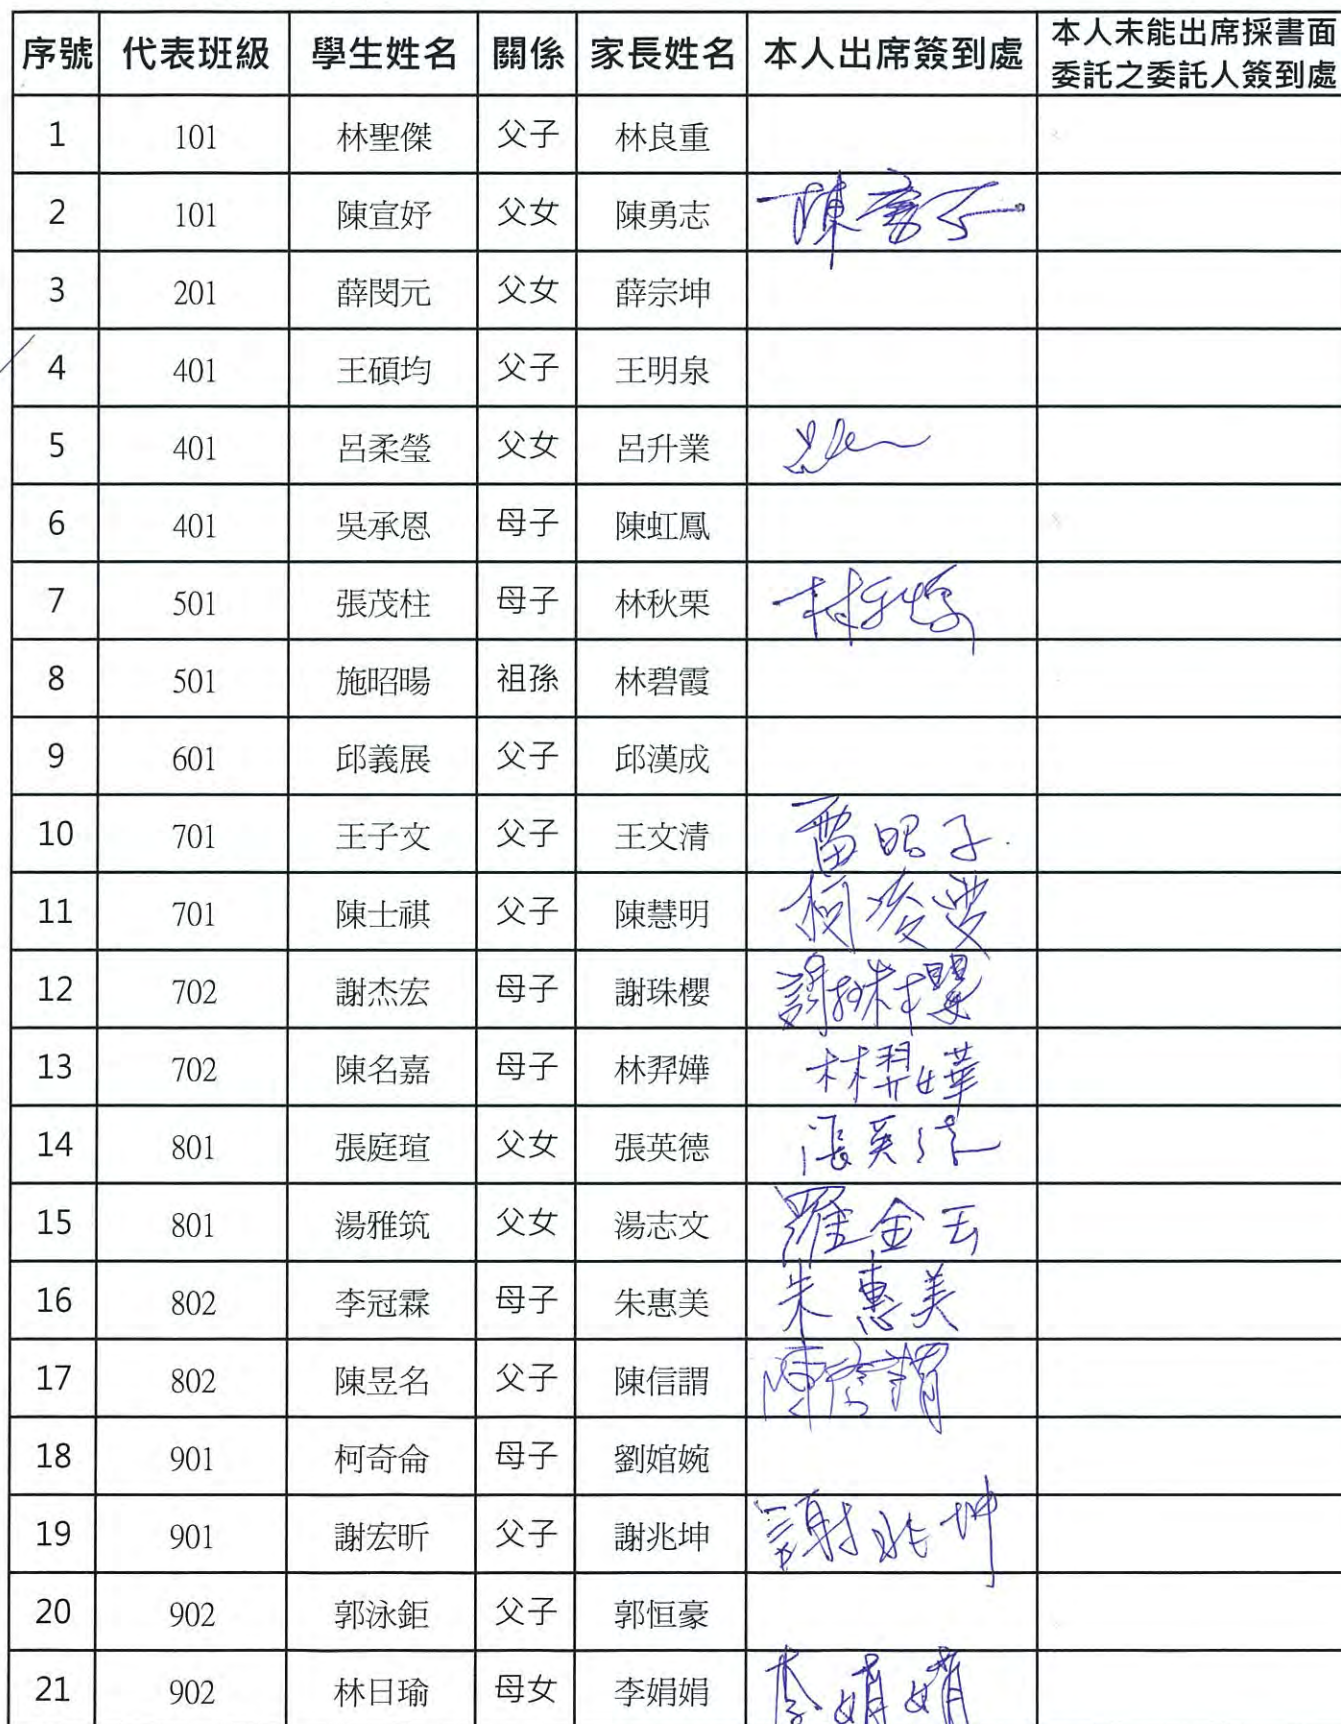 序號 代表班級 學生姓名 關係 家長姓名 本人出席簽到處 本人未能出席採書面
委託之委託人簽到處
1 101 林聖傑 父子 林良重
2 101 陳宣妤 父女 陳勇志
3 201 薛閔元 父女 薛宗坤
4 401 王碩均 父子 王明泉
5 401 呂柔瑩 父女 呂升業
6 401 吳承恩 母子 陳虹鳳
7 501 張茂柱 母子 林秋栗
8 501 施昭暘 祖孫 林碧霞
9 601 邱義展 父子 邱漢成
10 701 王子文 父子 王文清 雷昭子
11 701 陳士祺 父子 陳慧明
12 702 謝杰宏 母子 謝珠櫻 謝珠櫻
13 702 陳名嘉 母子 林羿嬅 林羿嬅
14 801 張庭瑄 父女 張英德 張英德
15 801 湯雅筑 父女 湯志文 羅金玉
16 802 李冠霖 母子 朱惠美 朱惠美
17 802 陳昱名 父子 陳信謂 陳信謂
18 901 柯奇侖 母子 劉婠婉
19 901 謝宏昕 父子 謝兆坤 謝兆坤
20 902 郭泳鉅 父子 郭恒豪
21 902 林日瑜 母女 李娟娟 李娟娟